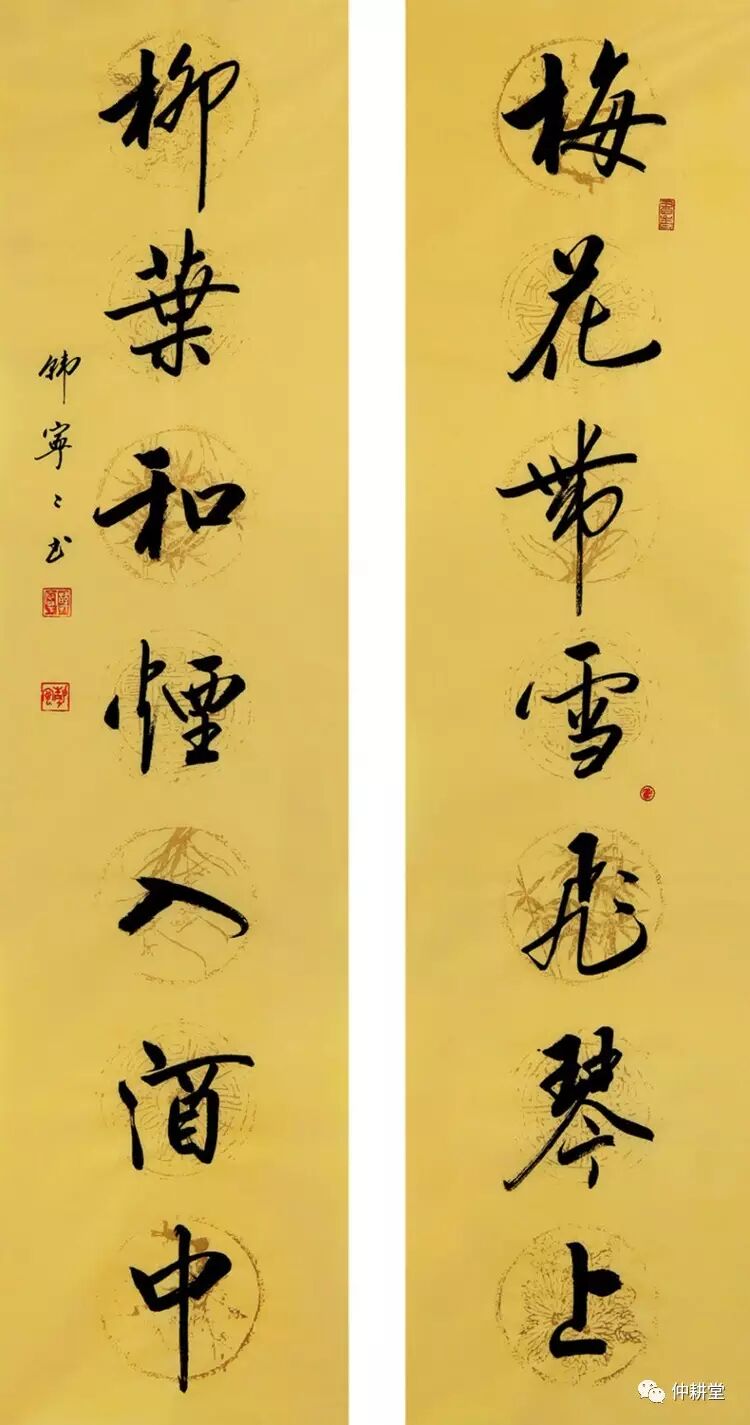 梅花帶雪飛琴上
柳葉和煙入酒中
韓寧〻书
仲耕堂